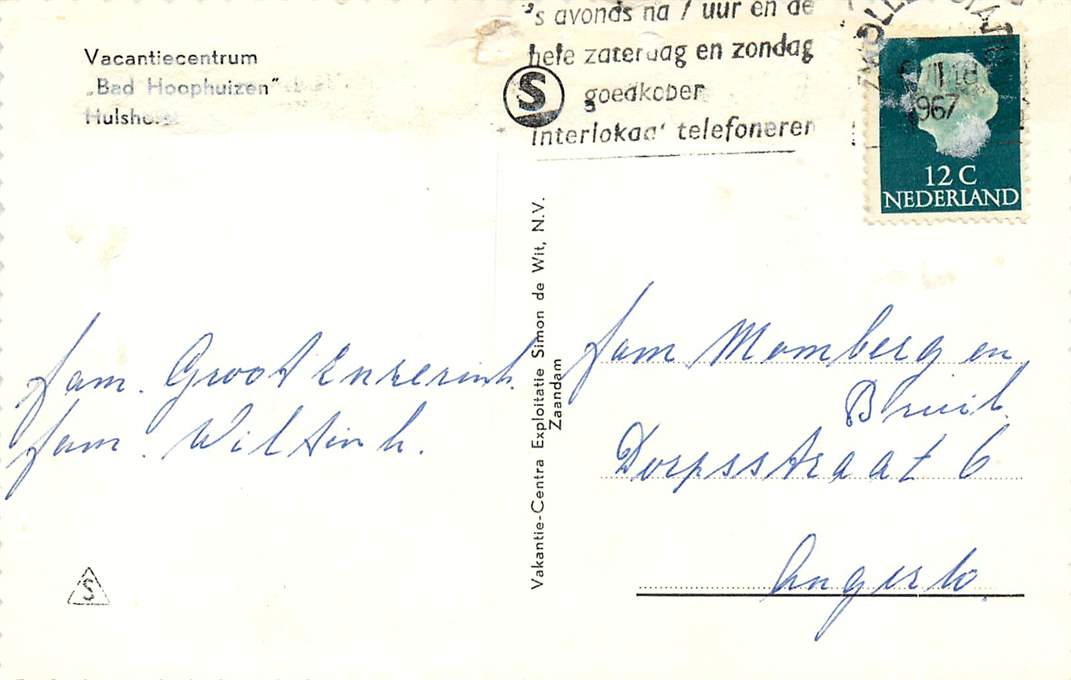 Vacantiecentrum
„Bad Hoophuizen"
Hulshorst
's avonds na 7 uur en de
hele zaterdag en zondag
S goedkoper
interlokaal telefoneren
1967
12 C
NEDERLAND
fam. Groot Enzerink.
fam. Wiltink.
S
Vakantie-Centra Exploitatie Simon de Wit, N.V.
Zaandam
fam Momberg en
Bruil.
Dorpsstraat 6
Angerlo.